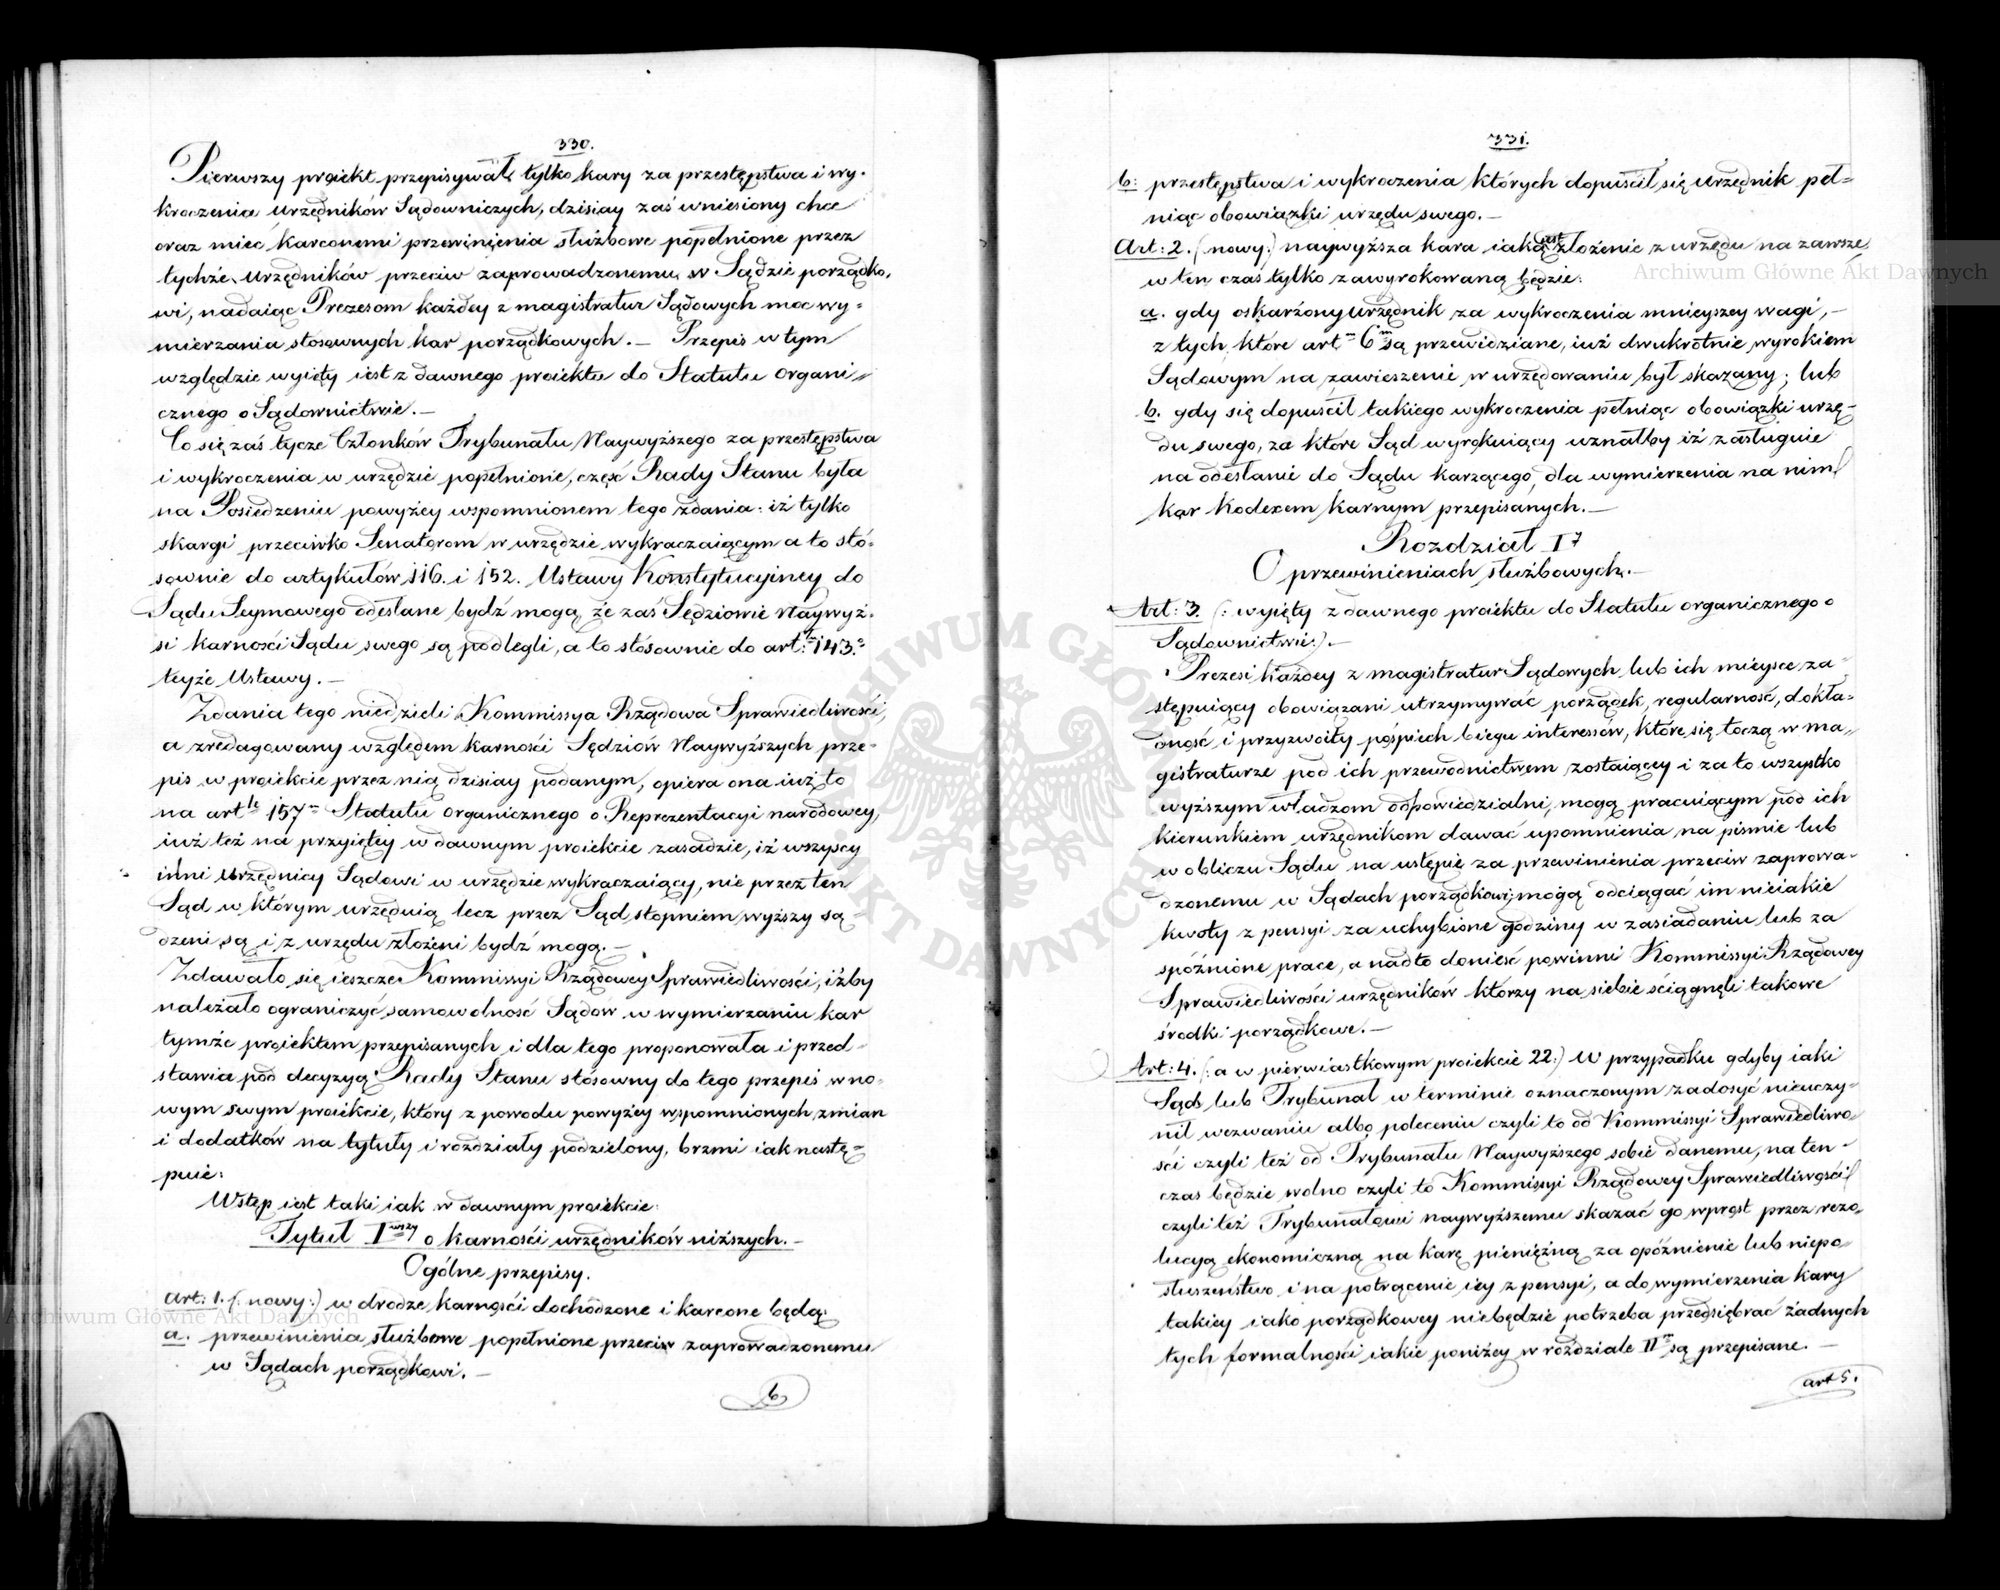 330.
Pierwszy proiekt przepisywał tylko kary za przestępstwa i wy-
kroczenia urzędników Sądowniczych, dzisiay zaś wniesiony chce
oraz mieć karconemi przewinienia służbowe popełnione przez
tychże urzędników przeciw zaprowadzonemu w Sądzie porządko,
wi, nadaiąc Prezesom każdey z magistratur Sądowych moc wy-
mierzania stosownych kar porządkowych. — Przepis w tym
względzie wyięty iest z dawnego proiektu do Statutu organi-
cznego o Sądownictwie. —
Co się zaś tycze Członków Trybunału Naywyższego za przestępstwa
i wykroczenia w urzędzie popełnione, część Rady Stanu była
na Posiedzeniu powyżey wspomnionem tego zdania: iż tylko
skargi przeciwko Senatorom w urzędzie wykraczaiącym a to sto-
sownie do artykułów 116. i 152. Ustawy Konstytucyiney do
Sądu Seymowego odesłane bydź mogą, że zaś Sędziowie Naywyż-
si karności Sądu swego są podlegli, a to stósownie do art: 143.
teyże Ustawy. —
Zdania tego niedzieli Kommissya Rządowa Sprawiedliwości,
a zredagowany względem karności Sędziów Naywyższych prze-
pis w proiekcie przez nią dzisiay podanym, opiera ona iuż to
na art 157 Statutu organicznego o Reprezentacyi narodowey,
iuż też na przyiętey w dawnym proiekcie zasadzie, iż wszyscy
inni urzędnicy Sądowi w urzędzie wykraczaiący, nie przez ten
Sąd w którym urzęduią lecz przez Sąd stopniem wyższy są-
dzeni są i z urzędu złożeni bydź mogą. —
Zdawało się ieszcze Kommissyi Rządowey Sprawiedliwości, iżby
należało ograniczyć samowolność Sądów w wymierzaniu kar
tymże proiektem przepisanych i dla tego proponowała i przed-
stawia pod decyzyą Rady Stanu stósowny do tego przepis w no-
wym swym proiekcie, który z powodu powyżey wspomnionych zmian
i dodatków na tytuły i rozdziały podzielony, brzmi iak nastę-
puie:
Wstęp iest taki iak w dawnym proiekcie:
Tytuł I wszy o karności urzędników niższych. —
Ogólne przepisy.
Art: 1. (: nowy:) w drodze karności dochodzone i karcone będą:
a. przewinienia służbowe popełnione przeciw zaprowadzonemu
w Sądach porządkowi. —
b
331.
b: przestępstwa i wykroczenia których dopuścił się urzędnik peł-
niąc obowiązki urzędu swego. —
Art: 2. (nowy:) naywyższa kara iaką iest złożenie z urzędu na zawsze
w ten czas tylko zawyrokowaną będzie:
a. gdy oskarżony urzędnik za wykroczenia mnieyszey wagi, —
z tych które art 6 są przewidziane, iuż dwukrotnie wyrokiem
Sądowym na zawieszenie w urzędowaniu był skazany; lub
b. gdy się dopuścił takiego wykroczenia pełniąc obowiązki urzę-
du swego, za które Sąd wyrokuiący uznałby iż zasługuie
na odesłanie do Sądu karzącego, dla wymierzenia na nim
kar Kodexem karnym przepisanych. —
Rozdział I
O przewinieniach służbowych. —
Art: 3. (: wyięty z dawnego proiektu do Statutu organicznego o
Sądownictwie:). —
Prezesi każdey z magistratur Sądowych lub ich mieysce za-
stępuiący obowiązani utrzymywać porządek, regularność, dokła-
dność i przyzwoity pośpiech biegu interessów, które się toczą w ma-
gistraturze pod ich przewodnictwem zostaiącey i za to wszystko
wyższym władzom odpowiedzialni, mogą pracuiącym pod ich
kierunkiem urzędnikom dawać upomnienia na piśmie lub
w obliczu Sądu na ustępie za przewinienia przeciw zaprowa-
dzonemu w Sądach porządkowi; mogą odciągać im nieiakie
kwoty z pensyi za uchybione godziny w zasiadaniu lub za
spóźnione prace, a nadto donieść powinni Kommissyi Rządowey
Sprawiedliwości urzędników którzy na siebie ściągnęli takowe
środki porządkowe. —
Art: 4. (: a w pierwiastkowym proiekcie 22:) W przypadku gdyby iaki
Sąd lub Trybunał w terminie oznaczonym zadosyć nieuczy-
nił wezwaniu albo poleceniu czyli to od Kommissyi Sprawiedliwo-
ści czyli też od Trybunału Naywyższego sobie danemu, na ten -
czas będzie wolno czyli to Kommissyi Rządowey Sprawiedliwości
czyli też Trybunałowi naywyższemu skazać go wprost przez rezo-
lucyą ekonomiczną na karę pieniężną za opóźnienie lub niepo-
słuszeństwo i na potrącenie iey z pensyi, a do wymierzenia kary
takiey iako porządkowey niebędzie potrzeba przedsiębrać żadnych
tych formalności iakie poniżey w rozdziale II są przepisane. —
art 5.
Archiwum Główne Akt Dawnych
Archiwum Główne Akt Dawnych
ARCHIWUM GŁÓWNE AKT DAWNYCH